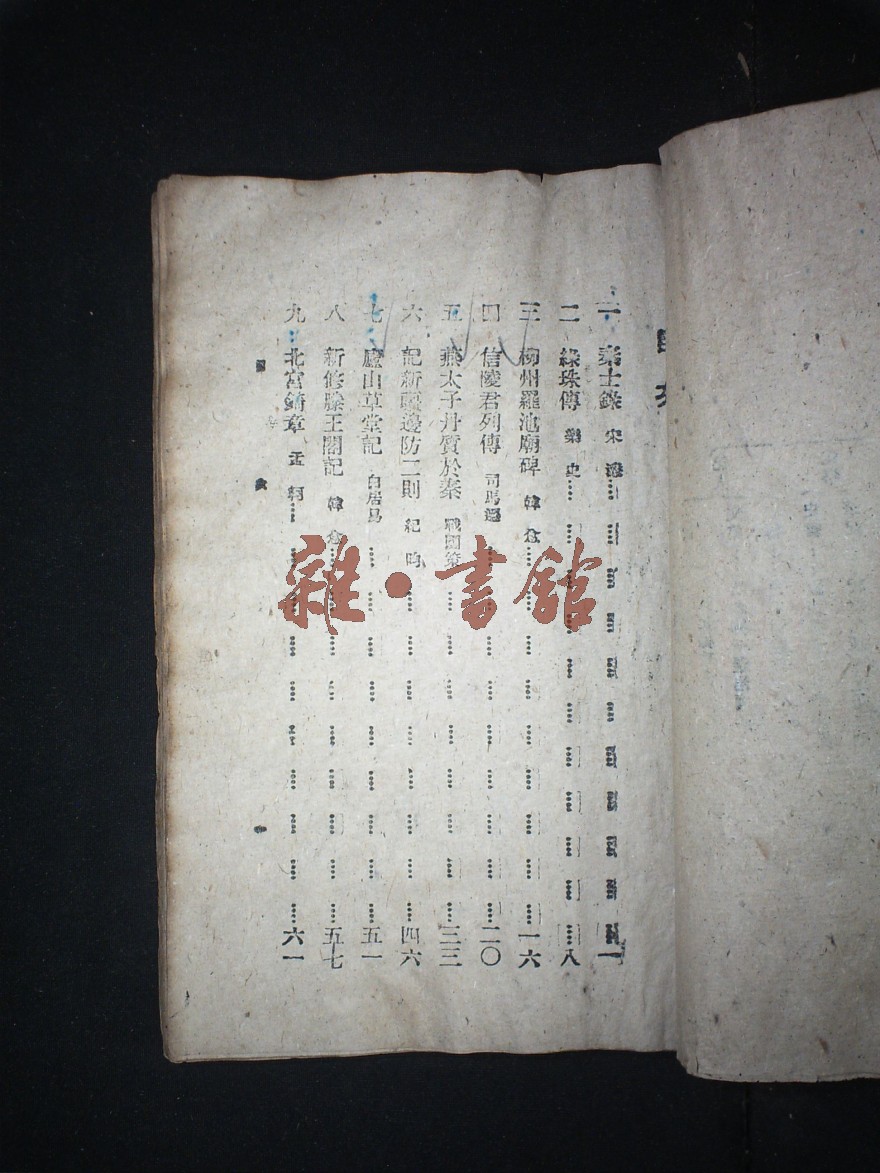 一 秦士錄 宋濂 一
二 綠珠傳 樂史 八
三 柳州羅池廟碑 韓愈 一六
四 信陵君列傳 司馬遷 二〇
五 燕太子丹質於秦 戰國策 三三
六 記新疆邊防二則 紀昀 四六
七 廬山草堂記 白居易 五一
八 新修滕王閣記 韓愈 五七
九 北宮錡章 孟軻 六一
雜·書館